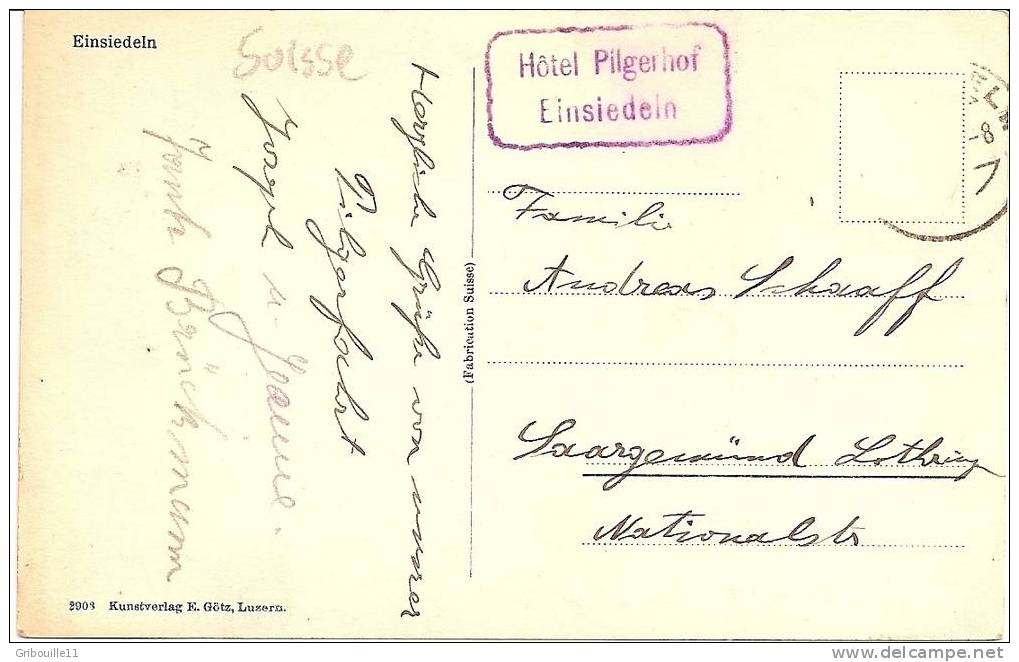 Einsiedeln
Suisse
Hôtel Pilgerhof
Einsiedeln
Herzliche Grüße von unserer
Pilgerfahrt
Joseph u. Jeanne.
Brückmann
(Fabrication Suisse)
Familie
Andreas Schaaff
Saargemünd Lothring
Nationalstr
2903 Kunstverlag E. Götz, Luzern.
Gribouille11
http://www.delcampe.net